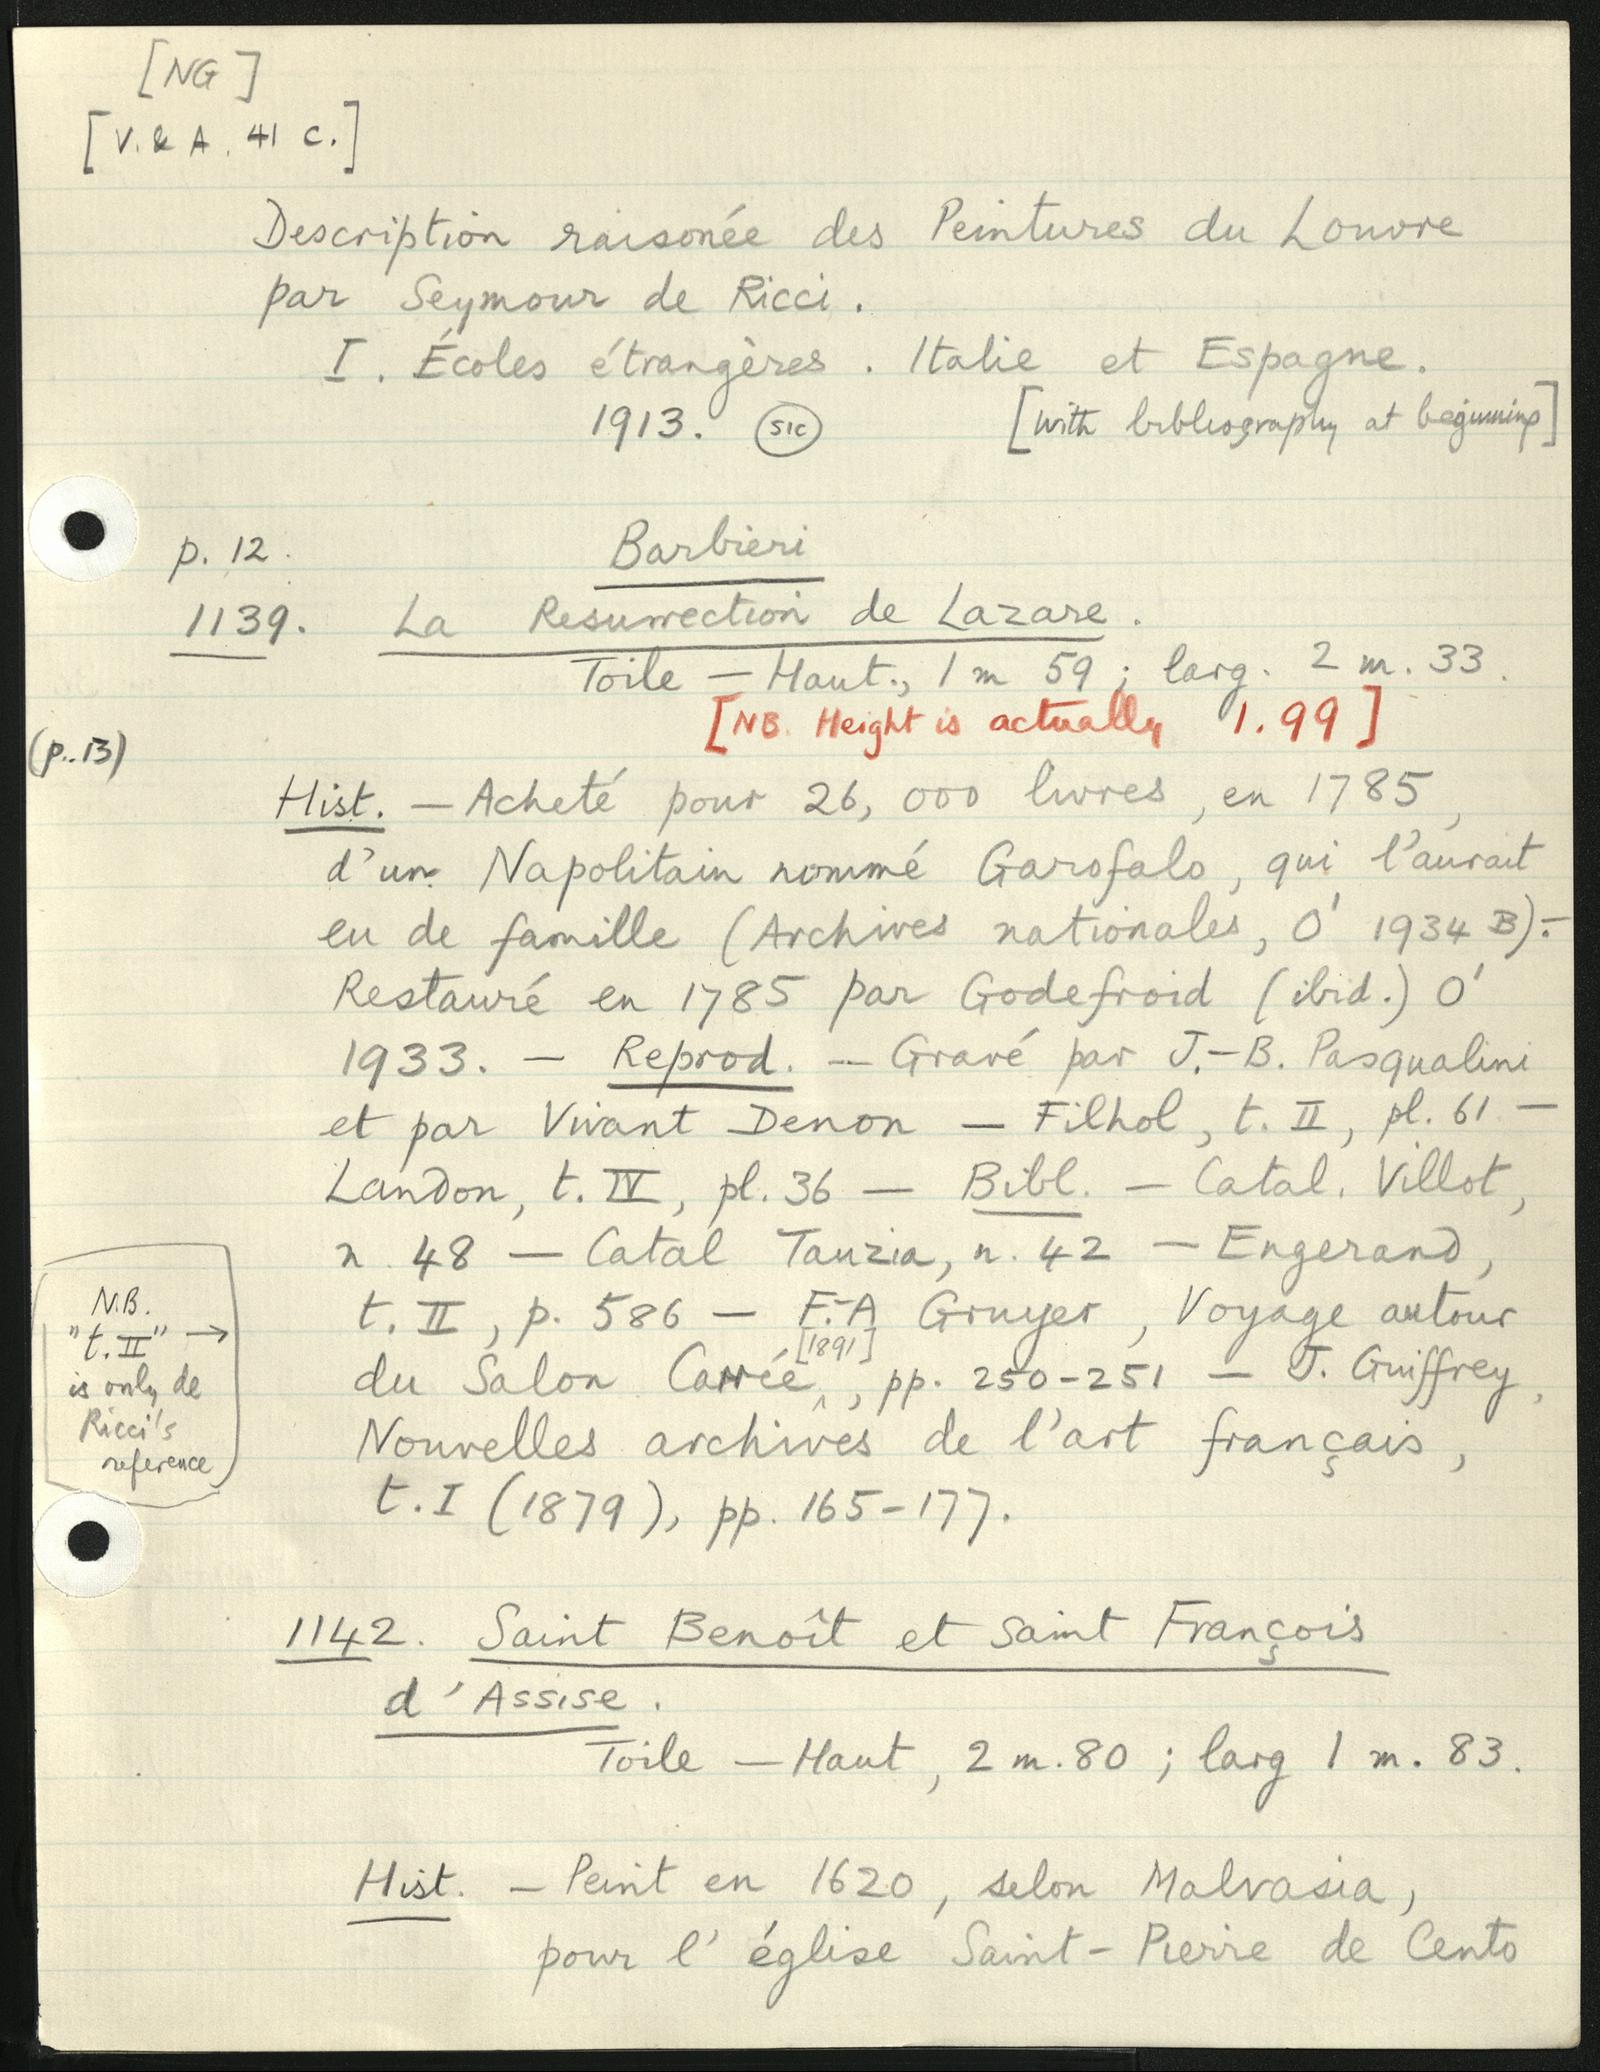 [NG]
[V. & A. 41 C.]
Description raisonée des Peintures du Louvre
par Seymour de Ricci.
I. Écoles étrangères. Italie et Espagne.
1913. sic [with bibliography at beginning]
p. 12. Barbieri
1139. La Resurrection de Lazare.
Toile — Haut., 1 m 59; larg. 2 m. 33.
[NB. Height is actually 1.99]
(p. 13)
Hist. — Acheté pour 26,000 livres, en 1785,
d'un Napolitain nommé Garofalo, qui l'aurait
eu de famille (Archives nationales, O' 1934 B). —
Restauré en 1785 par Godefroid (ibid.) O'
1933. — Reprod. — Gravé par J.-B. Pasqualini
et par Vivant Denon — Filhol, t. II, pl. 61 —
Landon, t. IV, pl. 36 — Bibl. — Catal. Villot,
n. 48 — Catal Tauzia, n. 42 — Engerand,
t. II, p. 586 — F.-A Gruyer, Voyage autour
du Salon Carré [1891], pp. 250-251 — J. Guiffrey,
Nouvelles archives de l'art français,
t. I (1879), pp. 165-177.
N.B.
"t. II" →
is only de
Ricci's
reference
1142. Saint Benoît et Saint François
d'Assise.
Toile — Haut, 2 m. 80; larg 1 m. 83.
Hist. — Peint en 1620, selon Malvasia,
pour l'église Saint-Pierre de Cento